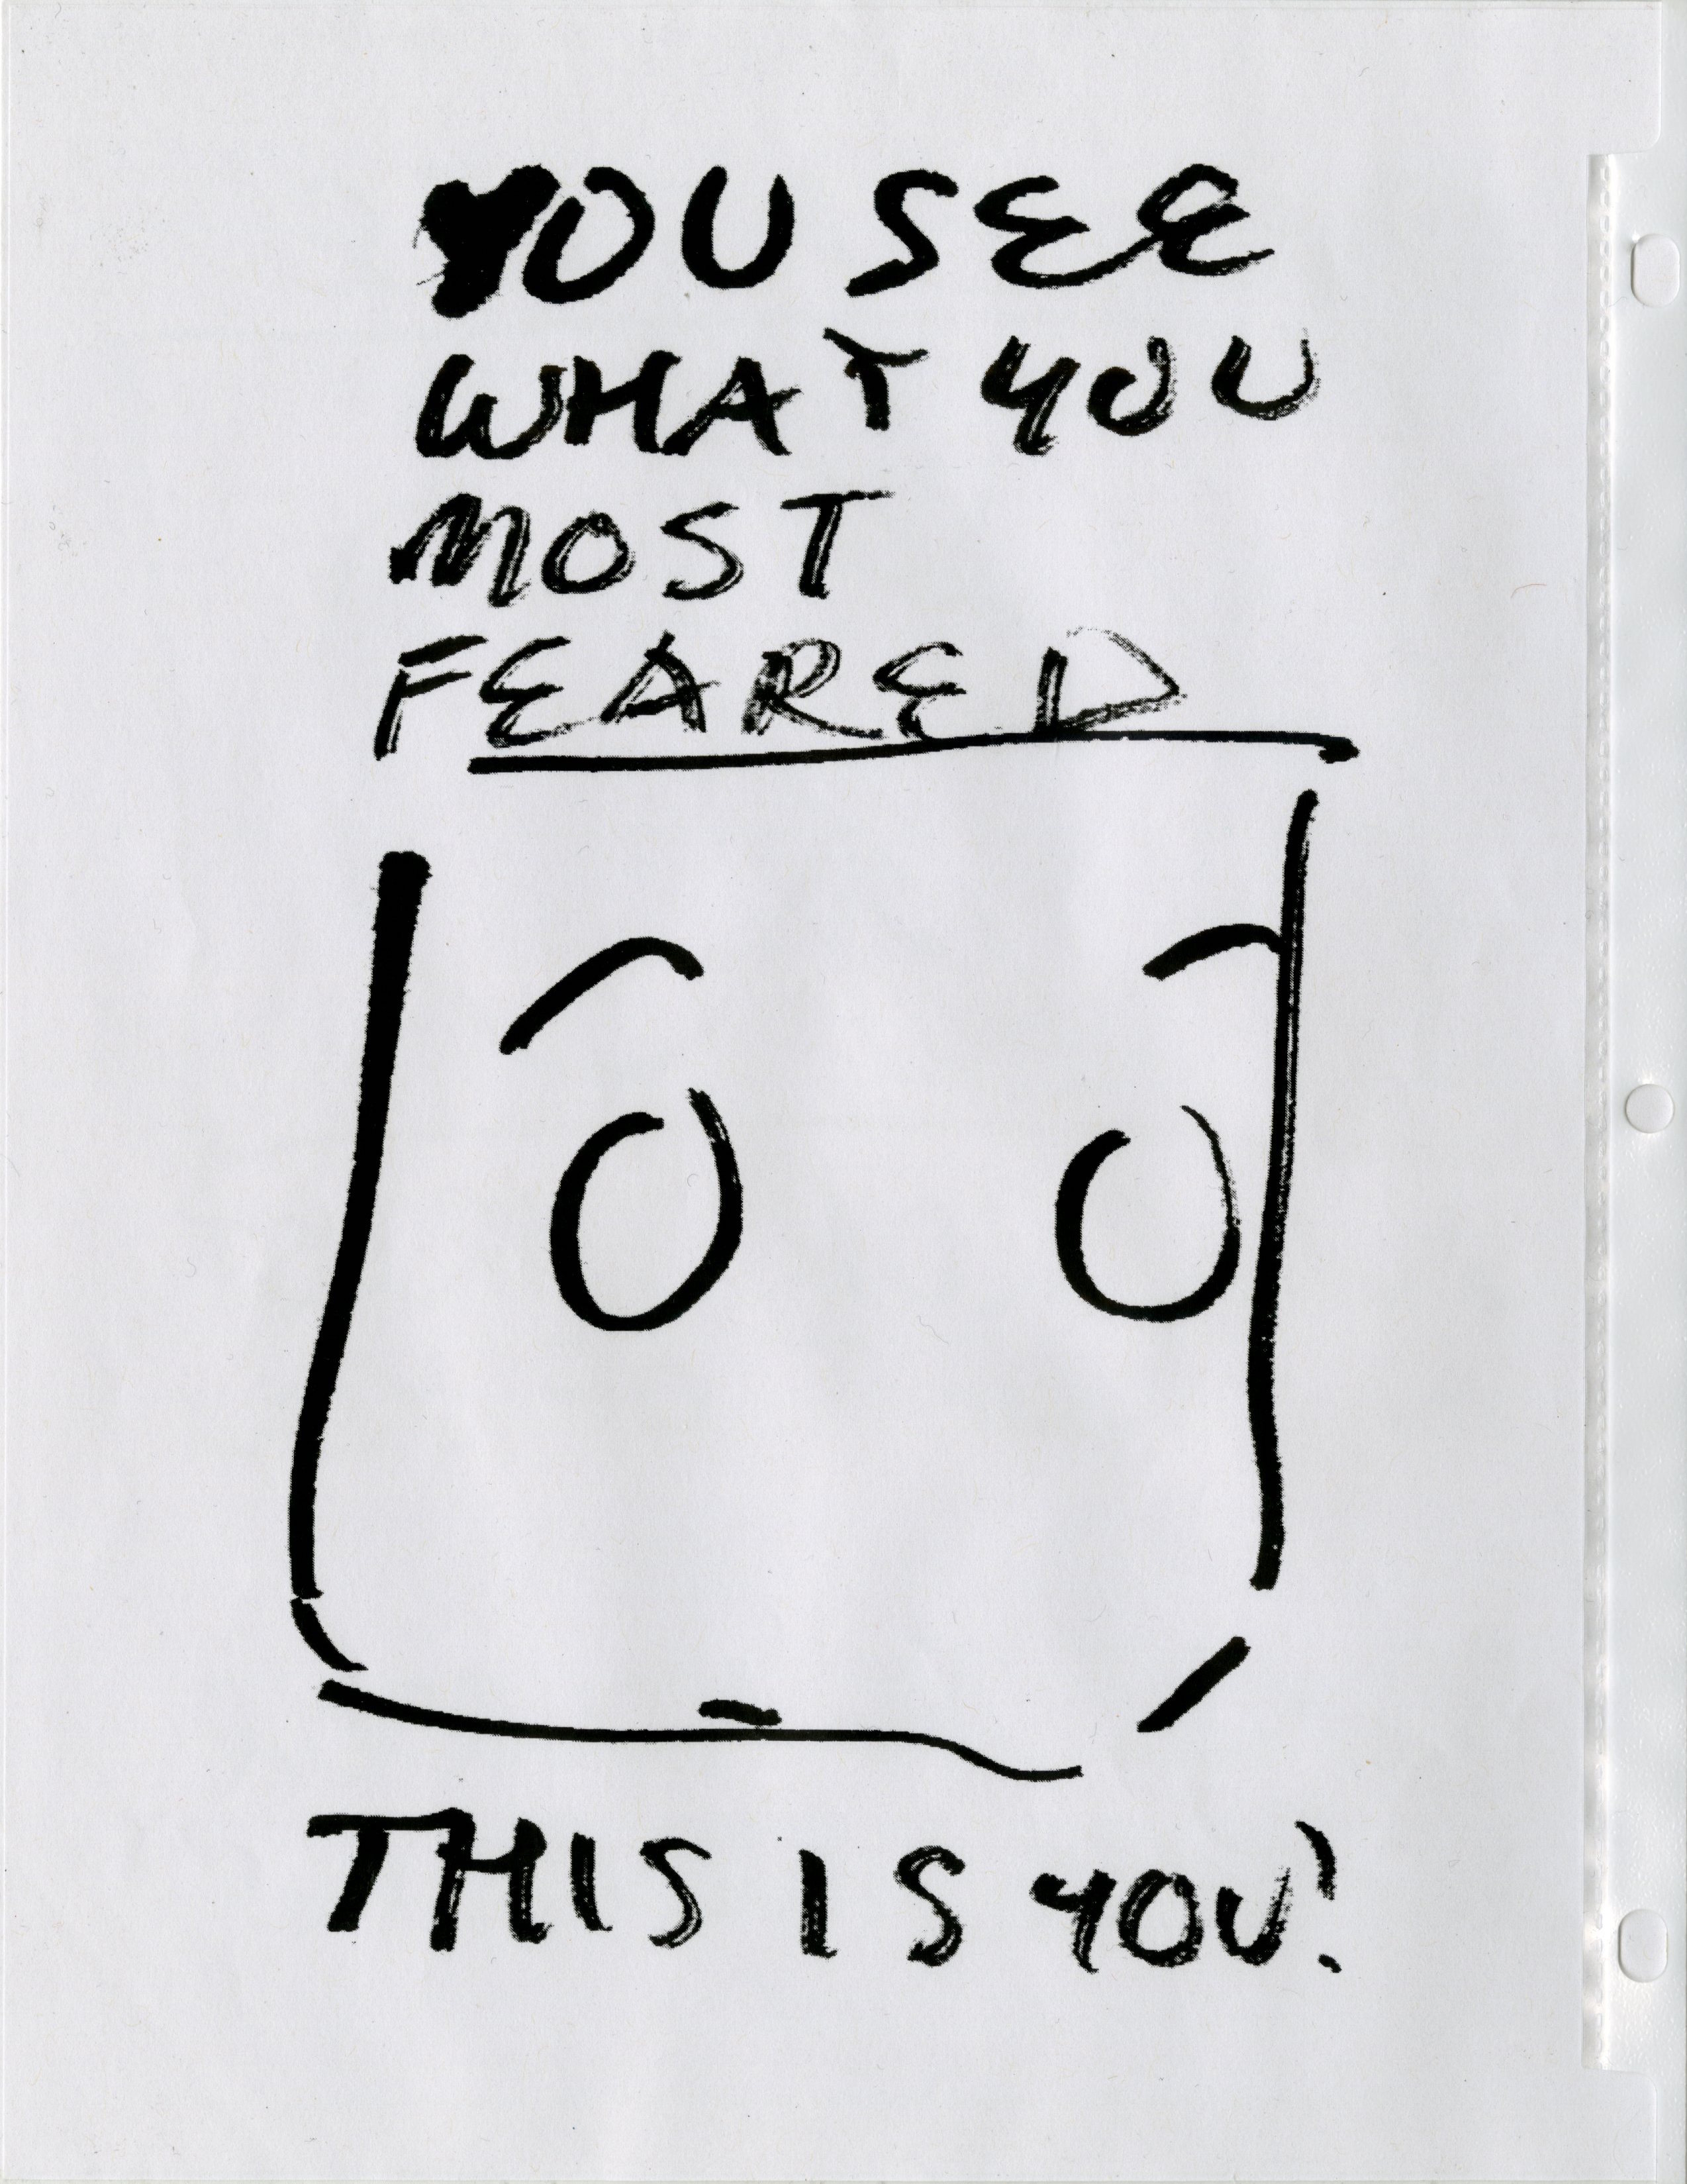 YOU SEE
WHAT YOU
MOST
FEARED
THIS IS YOU!